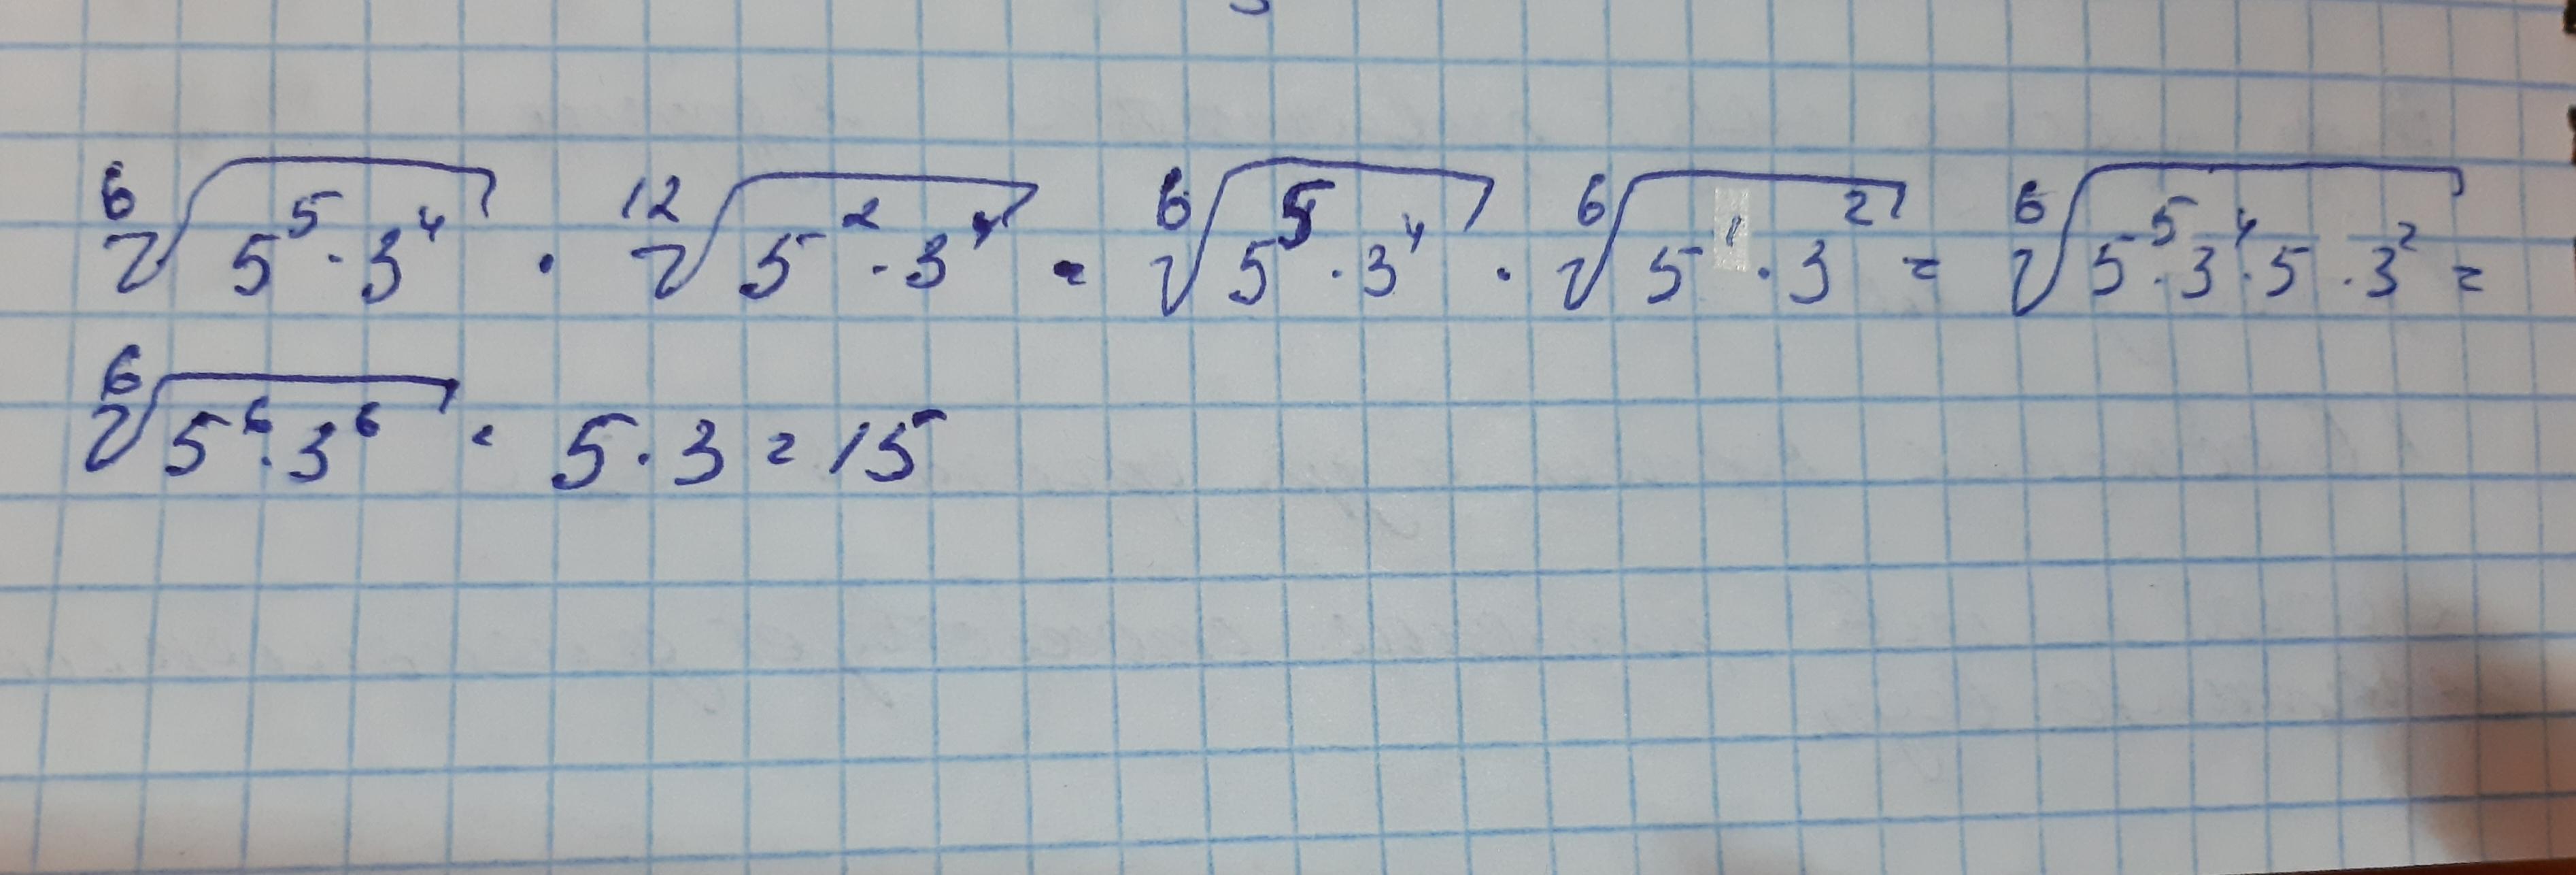 ⁶√(5⁵·3⁴) · ¹²√(5²·3⁴) = ⁶√(5⁵·3⁴) · ⁶√(5¹·3²) = ⁶√(5⁵·3⁴·5·3²) =
⁶√(5⁶·3⁶) = 5·3 = 15